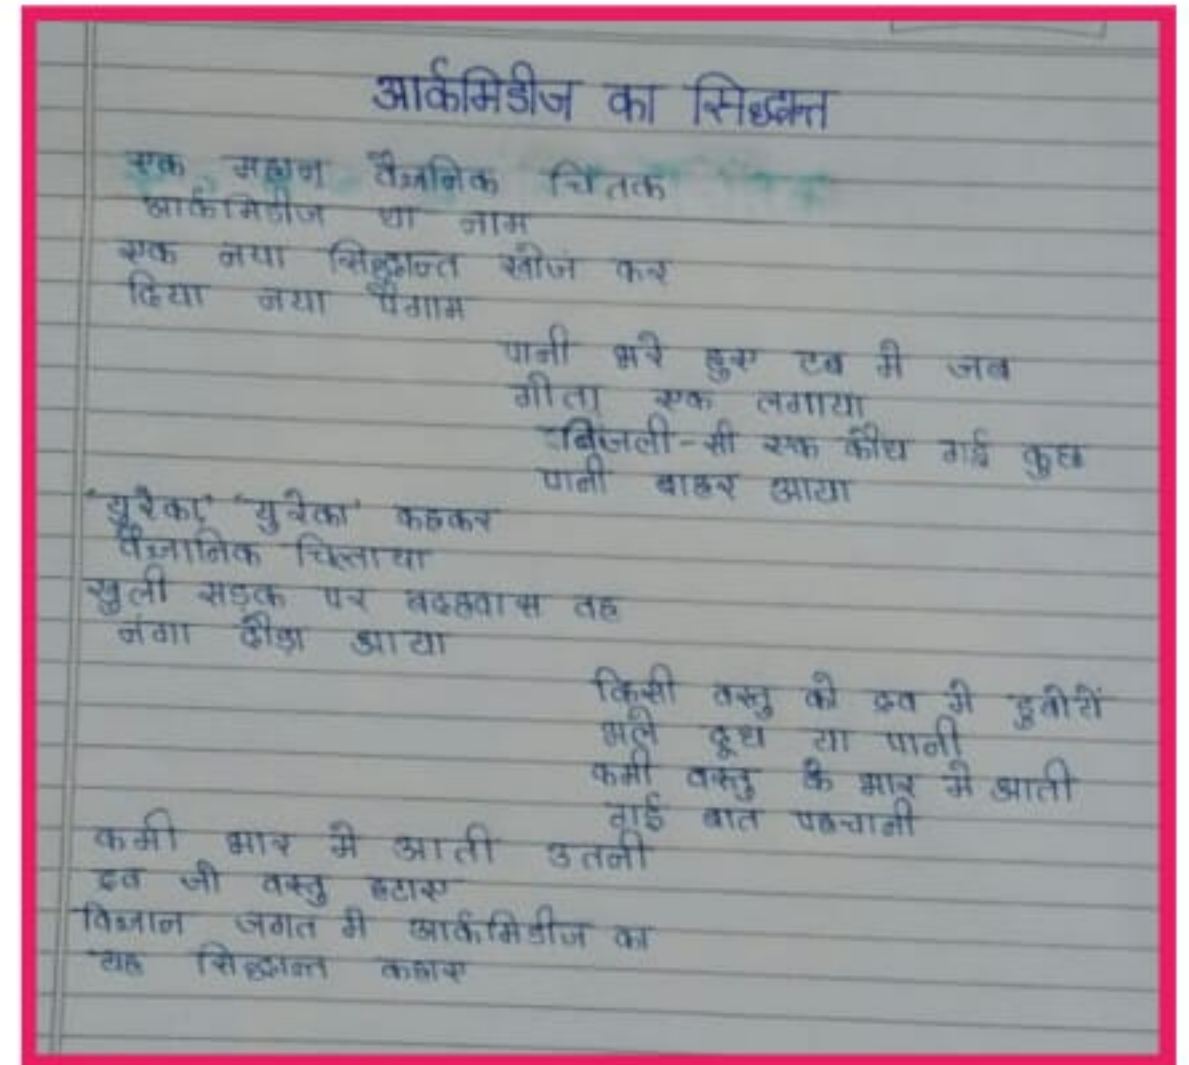 आर्कमिडीज का सिद्धान्त
एक महान वैज्ञानिक चिंतक
आर्कमिडीज था नाम
एक नया सिद्धान्त खोज कर
दिया नया पैगाम
पानी भरे हुए टब में जब
गोता एक लगाया
बिजली-सी एक कौंध गई कुछ
पानी बाहर आया
"यूरेका" "युरेका" कहकर
वैज्ञानिक चिल्लाया
खुली सड़क पर बदहवास वह
नंगा दौड़ा आया
किसी वस्तु को द्रव में डुबोयें
भले दूध या पानी
कमी वस्तु के भार में आती
गई बात पहचानी
कमी भार में आती उतनी
द्रव जो वस्तु हटाए
विज्ञान जगत में आर्कमिडीज का
यह सिद्धान्त कहाए